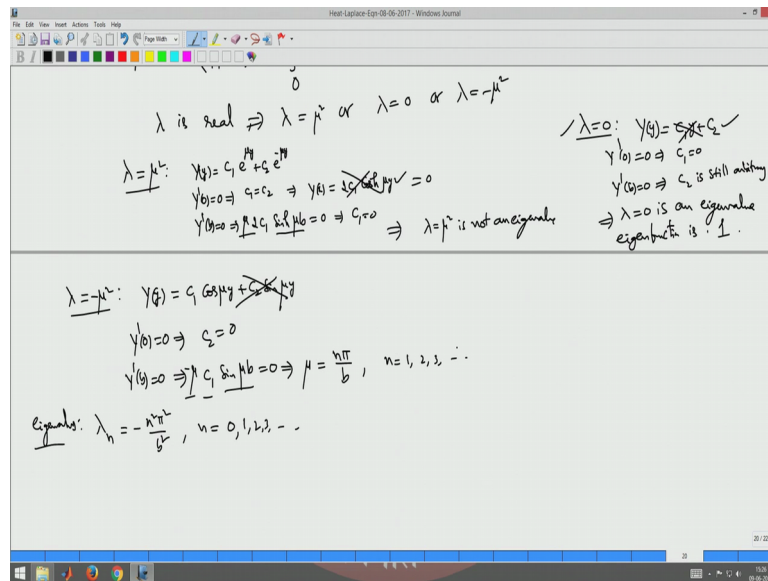 Heat-Laplace-Eqn-08-06-2017 - Windows Journal
File Edit View Insert Actions Tools Help
Page Width
B I
0
λ is real ⇒ λ = μ² or λ = 0 or λ = -μ²
λ = μ²: Y(y) = c₁ e^{μy} + c₂ e^{-μy}
Y'(0)=0 ⇒ c₁=c₂ ⇒ Y(y) = 2c₁ cosh μy ✓ = 0
Y'(b)=0 ⇒ μ 2 c₁ sinh μb = 0 ⇒ c₁=0
⇒ λ=μ² is not an eigenvalue
✓ λ=0: Y(y) = c₁y + c₂ ✓
Y'(0)=0 ⇒ c₁=0
Y'(b)=0 ⇒ c₂ is still arbitrary
⇒ λ=0 is an eigenvalue
eigenfunction is : 1.
λ = -μ²: Y(y) = c₁ cos μy + c₂ sin μy
Y'(0)=0 ⇒ c₂=0
Y'(b)=0 ⇒ -μ c₁ sin μb = 0 ⇒ μ = nπ/b, n=1, 2, 3, ...
λₙ = - n²π²/b², n = 0, 1, 2, 3, - -
20 / 22
20
15:26